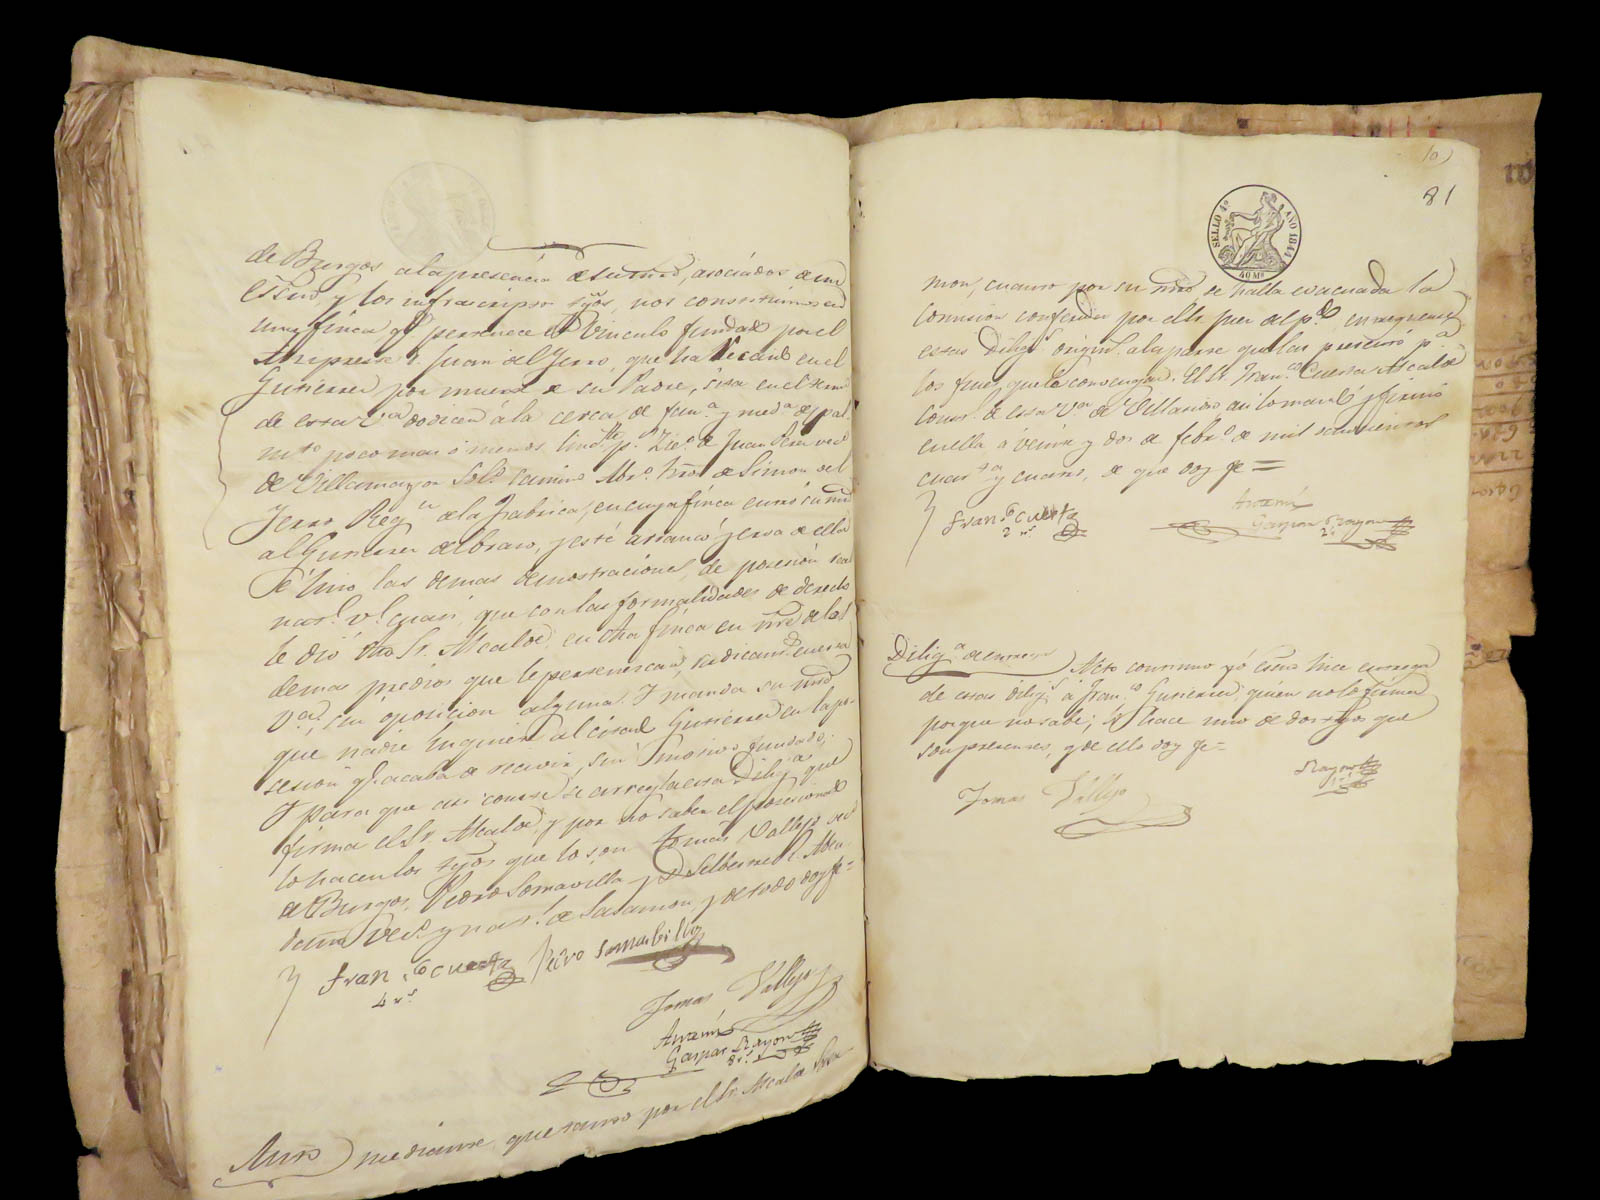 de Burgos a la presencia de su mrd, asociados de mi
Essno, y los infraescriptos tgos, nos constituimos en
una finca, q.e pertenece al Vinculo fundado por el
Juan del Yerro, que ha vacante en el
Gutierrez por muerte de su Padre, sita en el term
de esta V.a do dicen á la cerca, de fan.a y med.a de
m.to poco mas ó menos, de Juan
de Villamayor Camino de Simon del
Yerro, Reg.n de la Fabrica, en cuya finca entró su mrd
al Gutierrez del brazo, y esté arrancó yerva de ella
é hizo las demas demostraciones, de posesión real
v.l quasi, que con las formalidades de derecho
le dió dho Sr. Alcalde, en dha finca en mrd de las
demas predios que le pertenezcan, radicantes en esta
V.a, sin oposicion alguna. Y manda su mrd
que nadie inquiete al citado Gutierrez en la po-
sesion q.e acaba de recivir, sin motivo fundado;
Y para que asi conste se arregla esta Dilig.a que
firma el Sr. Alcalde, y por no saber el posesionado
lo hacen los tgos que lo son Tomas Vallejo vec.o
de Burgos, Pedro Somavilla y D.
vec.s y nat.s de Sasamon, y de todo doy fe=
Fran.co Cuesta Pedro Somabilla
4 r.s
Tomas Vallejo
Antemí
Gaspar Rayon
8 r.s
Auto mediante, que tanto por el Sr. Alcalde
10)
81
SELLO 4º AÑO 1844
40 Ms
mon, cuanto por su mrd se halla evacuada la
comision conferida por el Sr Juez del p.do, entreguense
estas Dilig.s origin.s a la parte que las presentó p.a
los fines que le convengan. El Sr. Fran.co Cuesta Alcalde
const. de esta V.a de Villasidro asi lo mandó y firmó
en ella á veinte y dos de febr.o de mil ochocientos
cuar.ta y cuatro, de que doy fe=
Fran.co Cuesta
2 r.s
Antemí
Gaspar Rayon
2 r.s
Dilig.a de entrega
Acto continuo yó el Essno hice entrega
de estas dilig.s á Fran.co Gutierrez quien no lo firma
porque no sabe; lo hace uno de dos tgos que
son presentes, y de ello doy fe=
Rayon
1 r.l
Tomas Vallejo